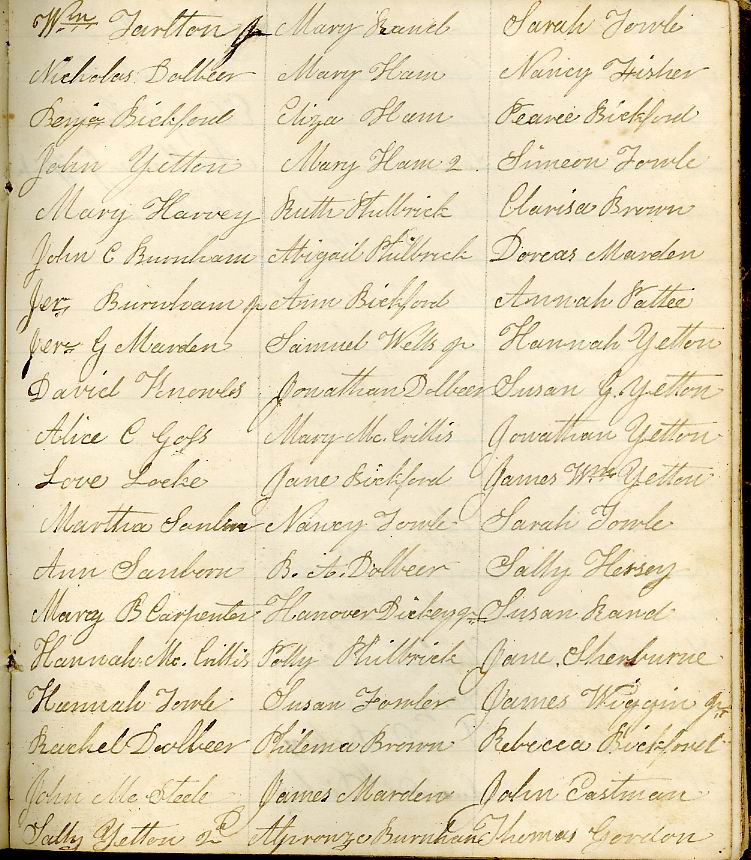 Wm Tarlton jr Mary Rand Sarah Towle
Nicholas Dolbeer Mary Ham Nancy Fisher
Benja Bickford Eliza Ham Pearee Bickford
John Yetton Mary Ham 2 Simeon Towle
Mary Harvey Ruth Philbrick Clarisa Brown
John C Burnham Abigail Philbrick Dorcas Marden
Jer Burnham jr Ann Bickford Annah Pattee
Jer G Marden Samuel Wells jr Hannah Yetton
David Knowles Jonathan Dolbeer Susan G. Yetton
Alice C Goss Mary Mc. Crillis Jonathan Yetton
Love Locke Jane Bickford James Wm Yetton
Martha Nancy Towle Sarah Towle
Ann Sanborn B. A. Dolbeer Sally Hersey
Marcy B Carpenter Hanover Dickey jr Susan Rand
Hannah Mc. Crillis Polly Philbrick Jane Sherburne
Hannah Towle Susan Fowler James Wiggin jr
Rachel Dolbeer Philema Brown Rebecca Bickford
John Mc Steele James Marden John Eastman
Sally Yetton 2d Burnham Thomas Gordon